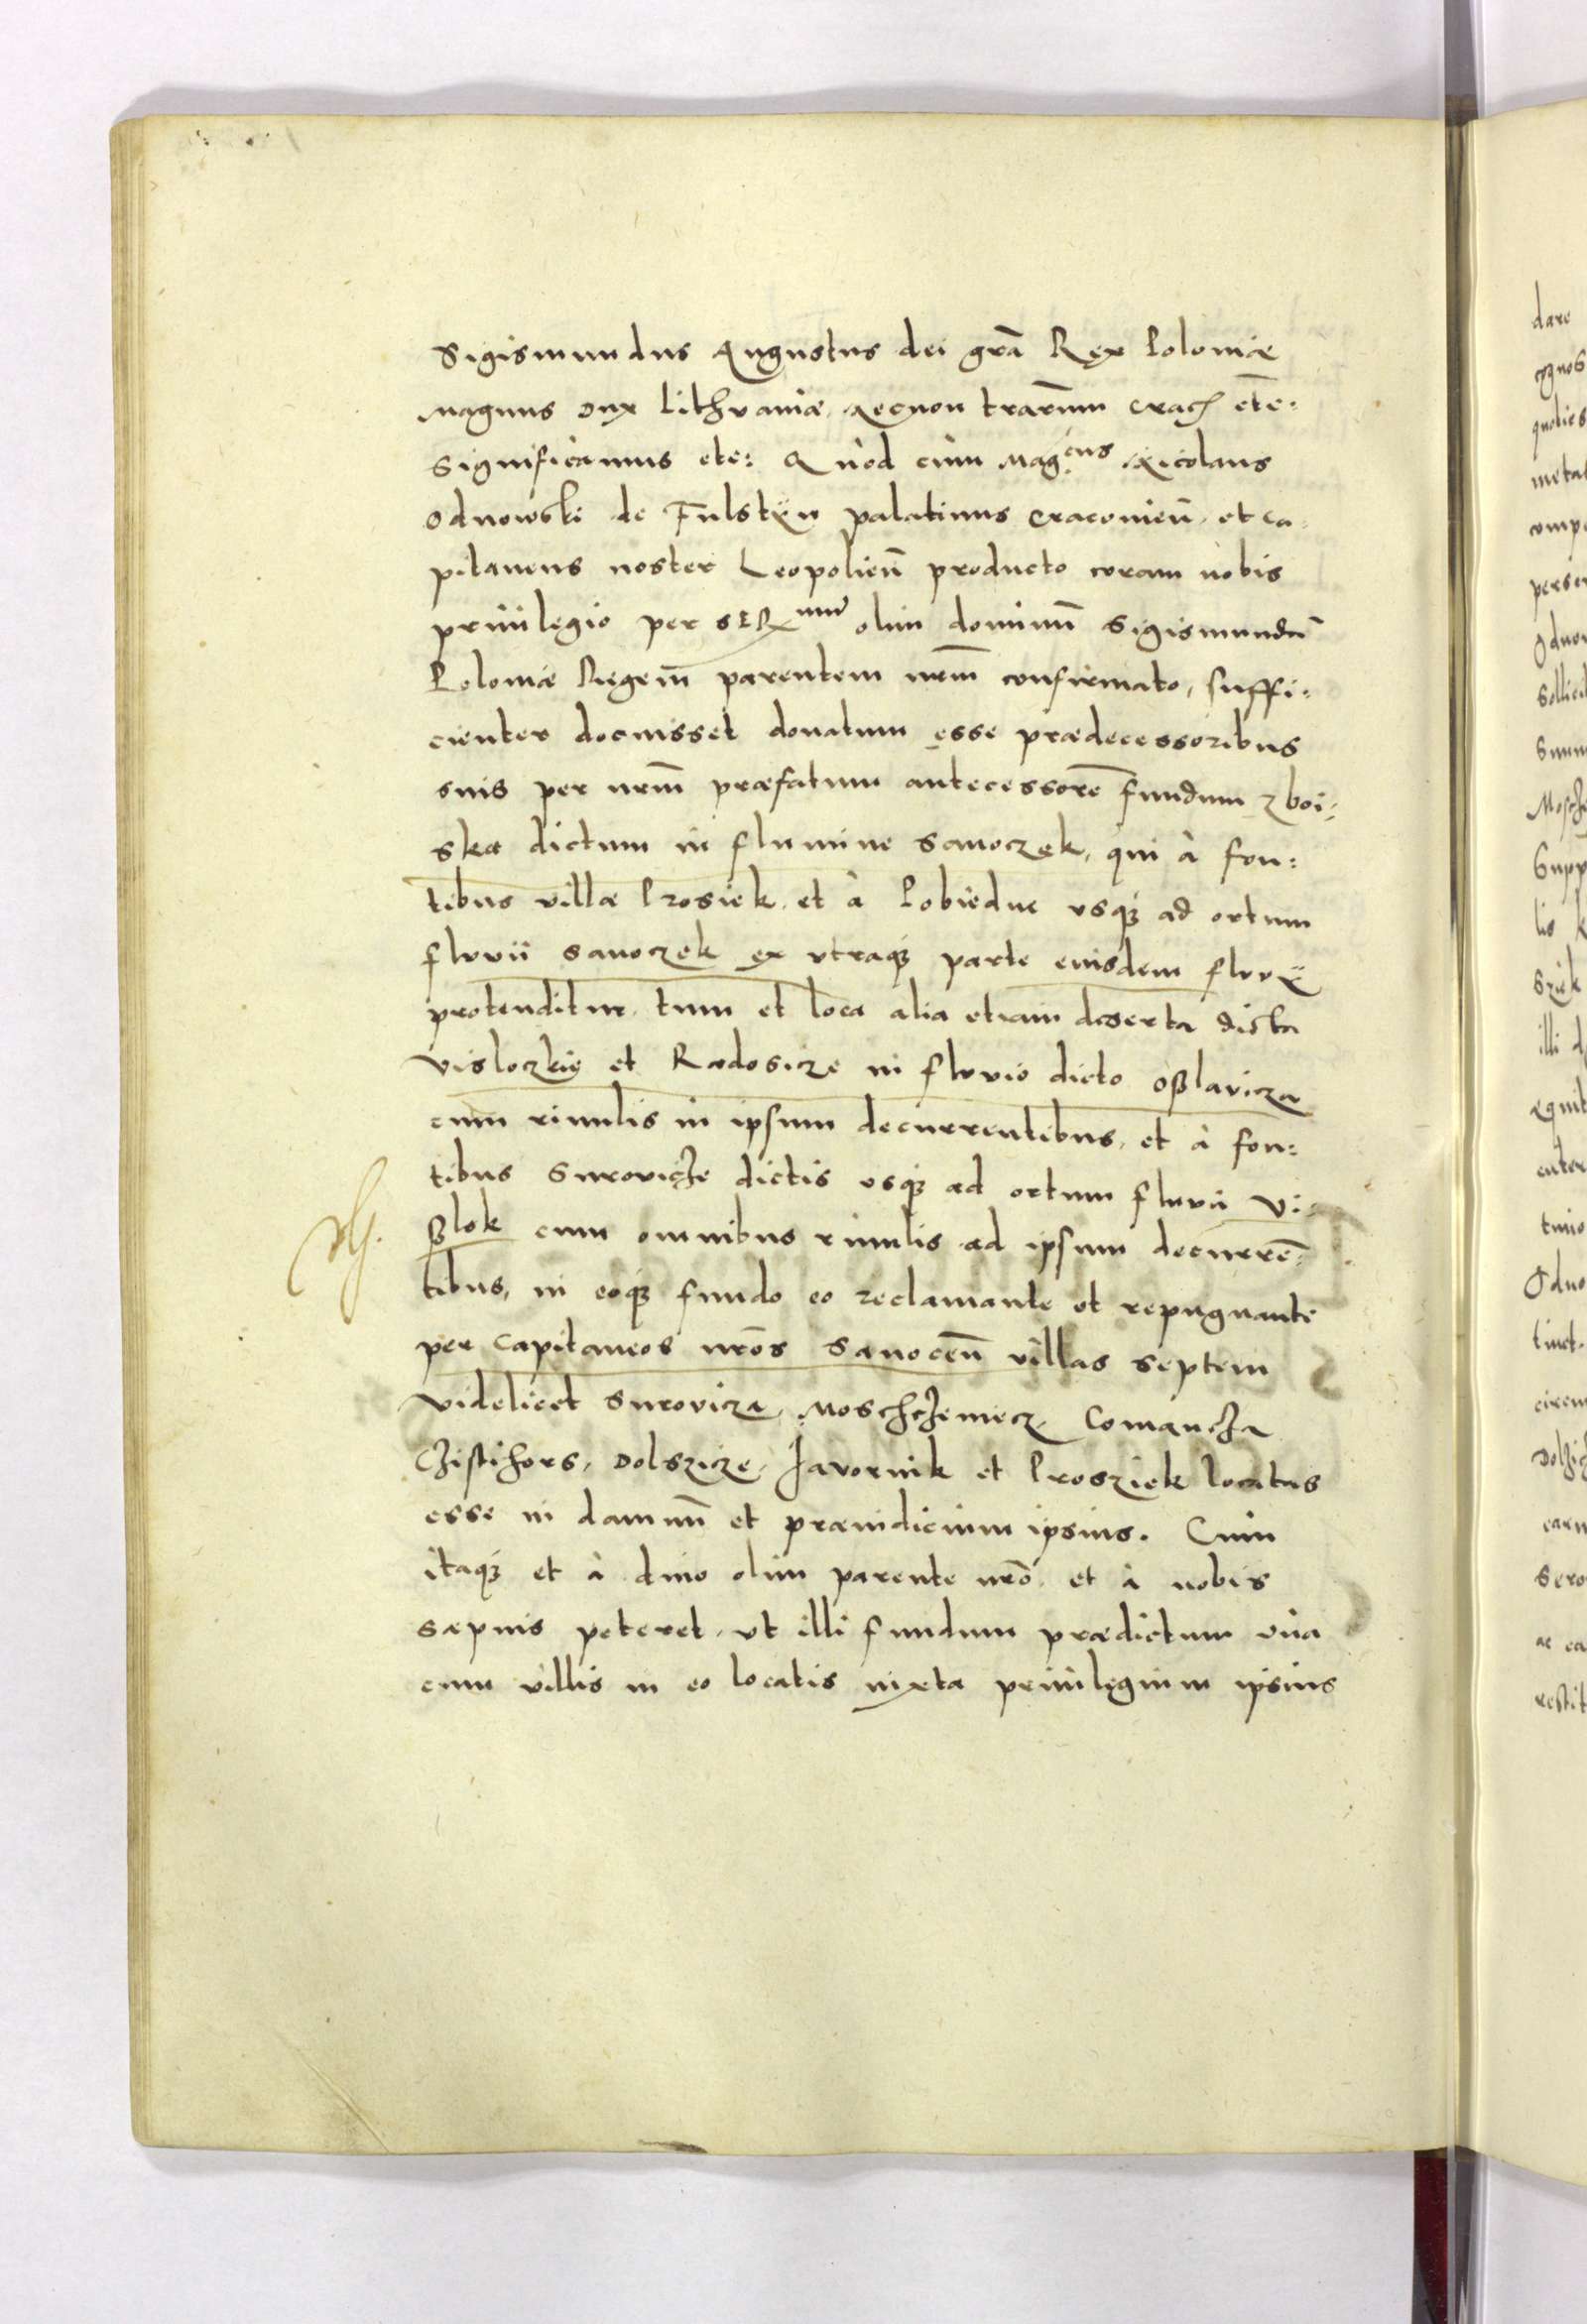 Sigismundus Augustus dei grã Rex Poloniæ
Magnus Dux Lithvaniæ, Necnon trarũm Crac etc:
Significamus etc: Quòd cùm Mag:cus Nicolaus
Odnowski de Fulstÿn palatinus Cracovieñ, et ca:
pitaneus noster Leopolieñ producto coram nobis
privilegio per SERmum olim dominũ Sigismundũ
Poloniæ Regem̃ parentem nrm̃ confirmato, suffi:
cienter docuisset donatum esse prædecessoribus
suis per nrm̃ præfatum antecessorẽ fundum Zboi:
ska dictum in flumine Sanoczek, qui à fon:
tibus villæ Prosiek, et à Pobiedne usq; ad ortum
fluvii Sanoczek ex utraq; parte eiusdem fluvÿ
protenditur, tum et loca alia etiam deserta dicta
Visloczkie et Radosicze in fluvio dicto Oßlavicza
cum rivulis in ipsum decurrentibus, et à fon:
tibus Surovicze dictis usq; ad ortum fluvii Vi:
ßlok cum omnibus rivulis ad ipsum decurrẽ:
tibus, in eoq; fundo eo reclamante et repugnante
per Capitaneos nrõs Sanoceñ villas septem
videlicet Surovicza, Moschczeniecz, Comancza
Czistihorb, Dolszicze, Javornik et Prosziek locatas
esse in damnũ et præiudicium ipsius. Cum
itaq; et à divo olim parente nrõ, et à nobis
sæpius peteret, ut illi fundum prædictum unà
cum villis in eo locatis iuxta privilegium ipsius
dare